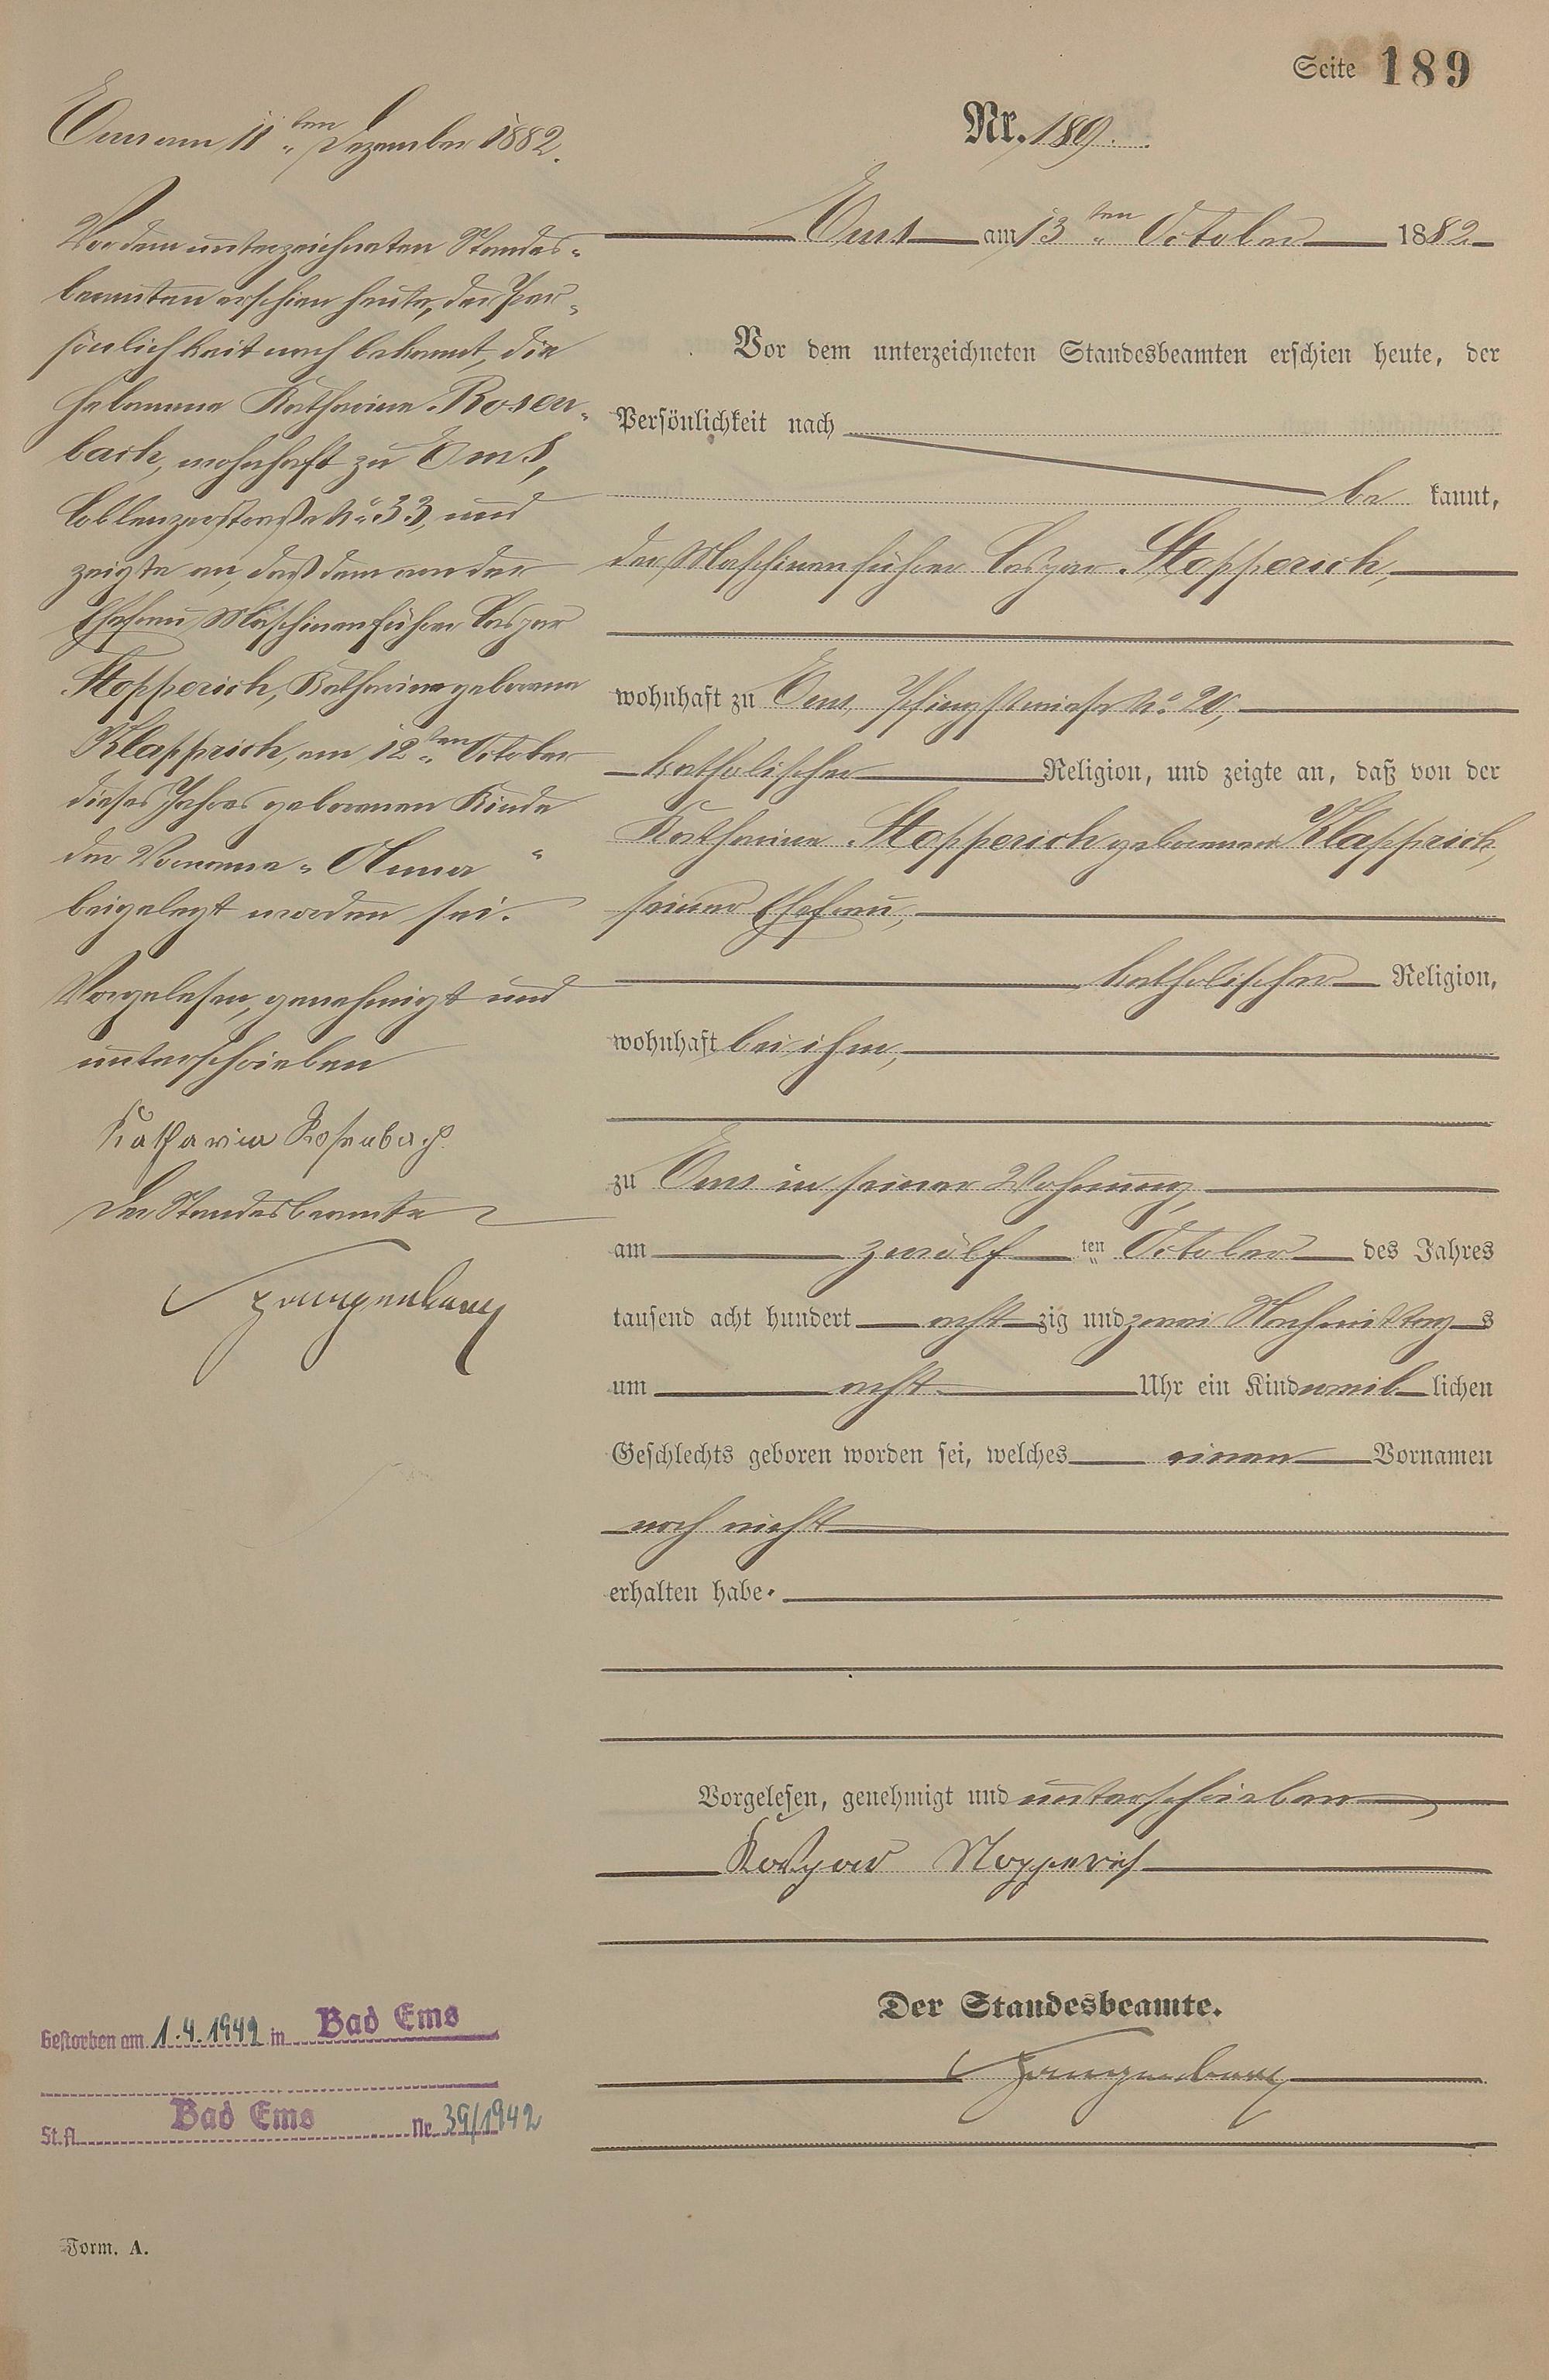 Seite 189
Nr. 189.
Ems am 13ten October 1882
Vor dem unterzeichneten Standesbeamten erschien heute, der
Persönlichkeit nach
be kannt,
der Maschinenführer Caspar Stopperich,
wohnhaft zu Ems, Pfingstwiese No. 20,
katholischer Religion, und zeigte an, daß von der
Katharina Stopperich geborenen Klapprich,
seiner Ehefrau,
katholischer Religion,
wohnhaft bei ihm,
zu Ems in seiner Wohnung,
am zwölf ten October des Jahres
tausend acht hundert acht zig und zwei Nachmittag s
um acht Uhr ein Kind weib lichen
Geschlechts geboren worden sei, welches einen Vornamen
noch nicht
erhalten habe.
Vorgelesen, genehmigt und unterschrieben
Kaspar Stopperich
Der Standesbeamte.
Ems am 11ten Dezember 1882.
Vor dem unterzeichneten Standes-
beamten erschien heute, der Per-
sönlichkeit nach bekannt, die
Hebamme Katharina Rosen-
bach, wohnhaft zu Ems,
Coblenzerstraße No. 33, und
zeigte an, daß dem von der
Ehefrau Maschinenführer Caspar
Stopperich, Katharina geborene
Klapprich, am 12ten October
dieses Jahres geborenen Kinde
der Vorname "Anna"
beigelegt worden sei.
Vorgelesen, genehmigt und
unterschrieben
Katharina Rosenbach
Der Standesbeamte
Gestorben am 1.4.1942 in Bad Ems
St.A. Bad Ems Nr. 39/1942
Form. A.